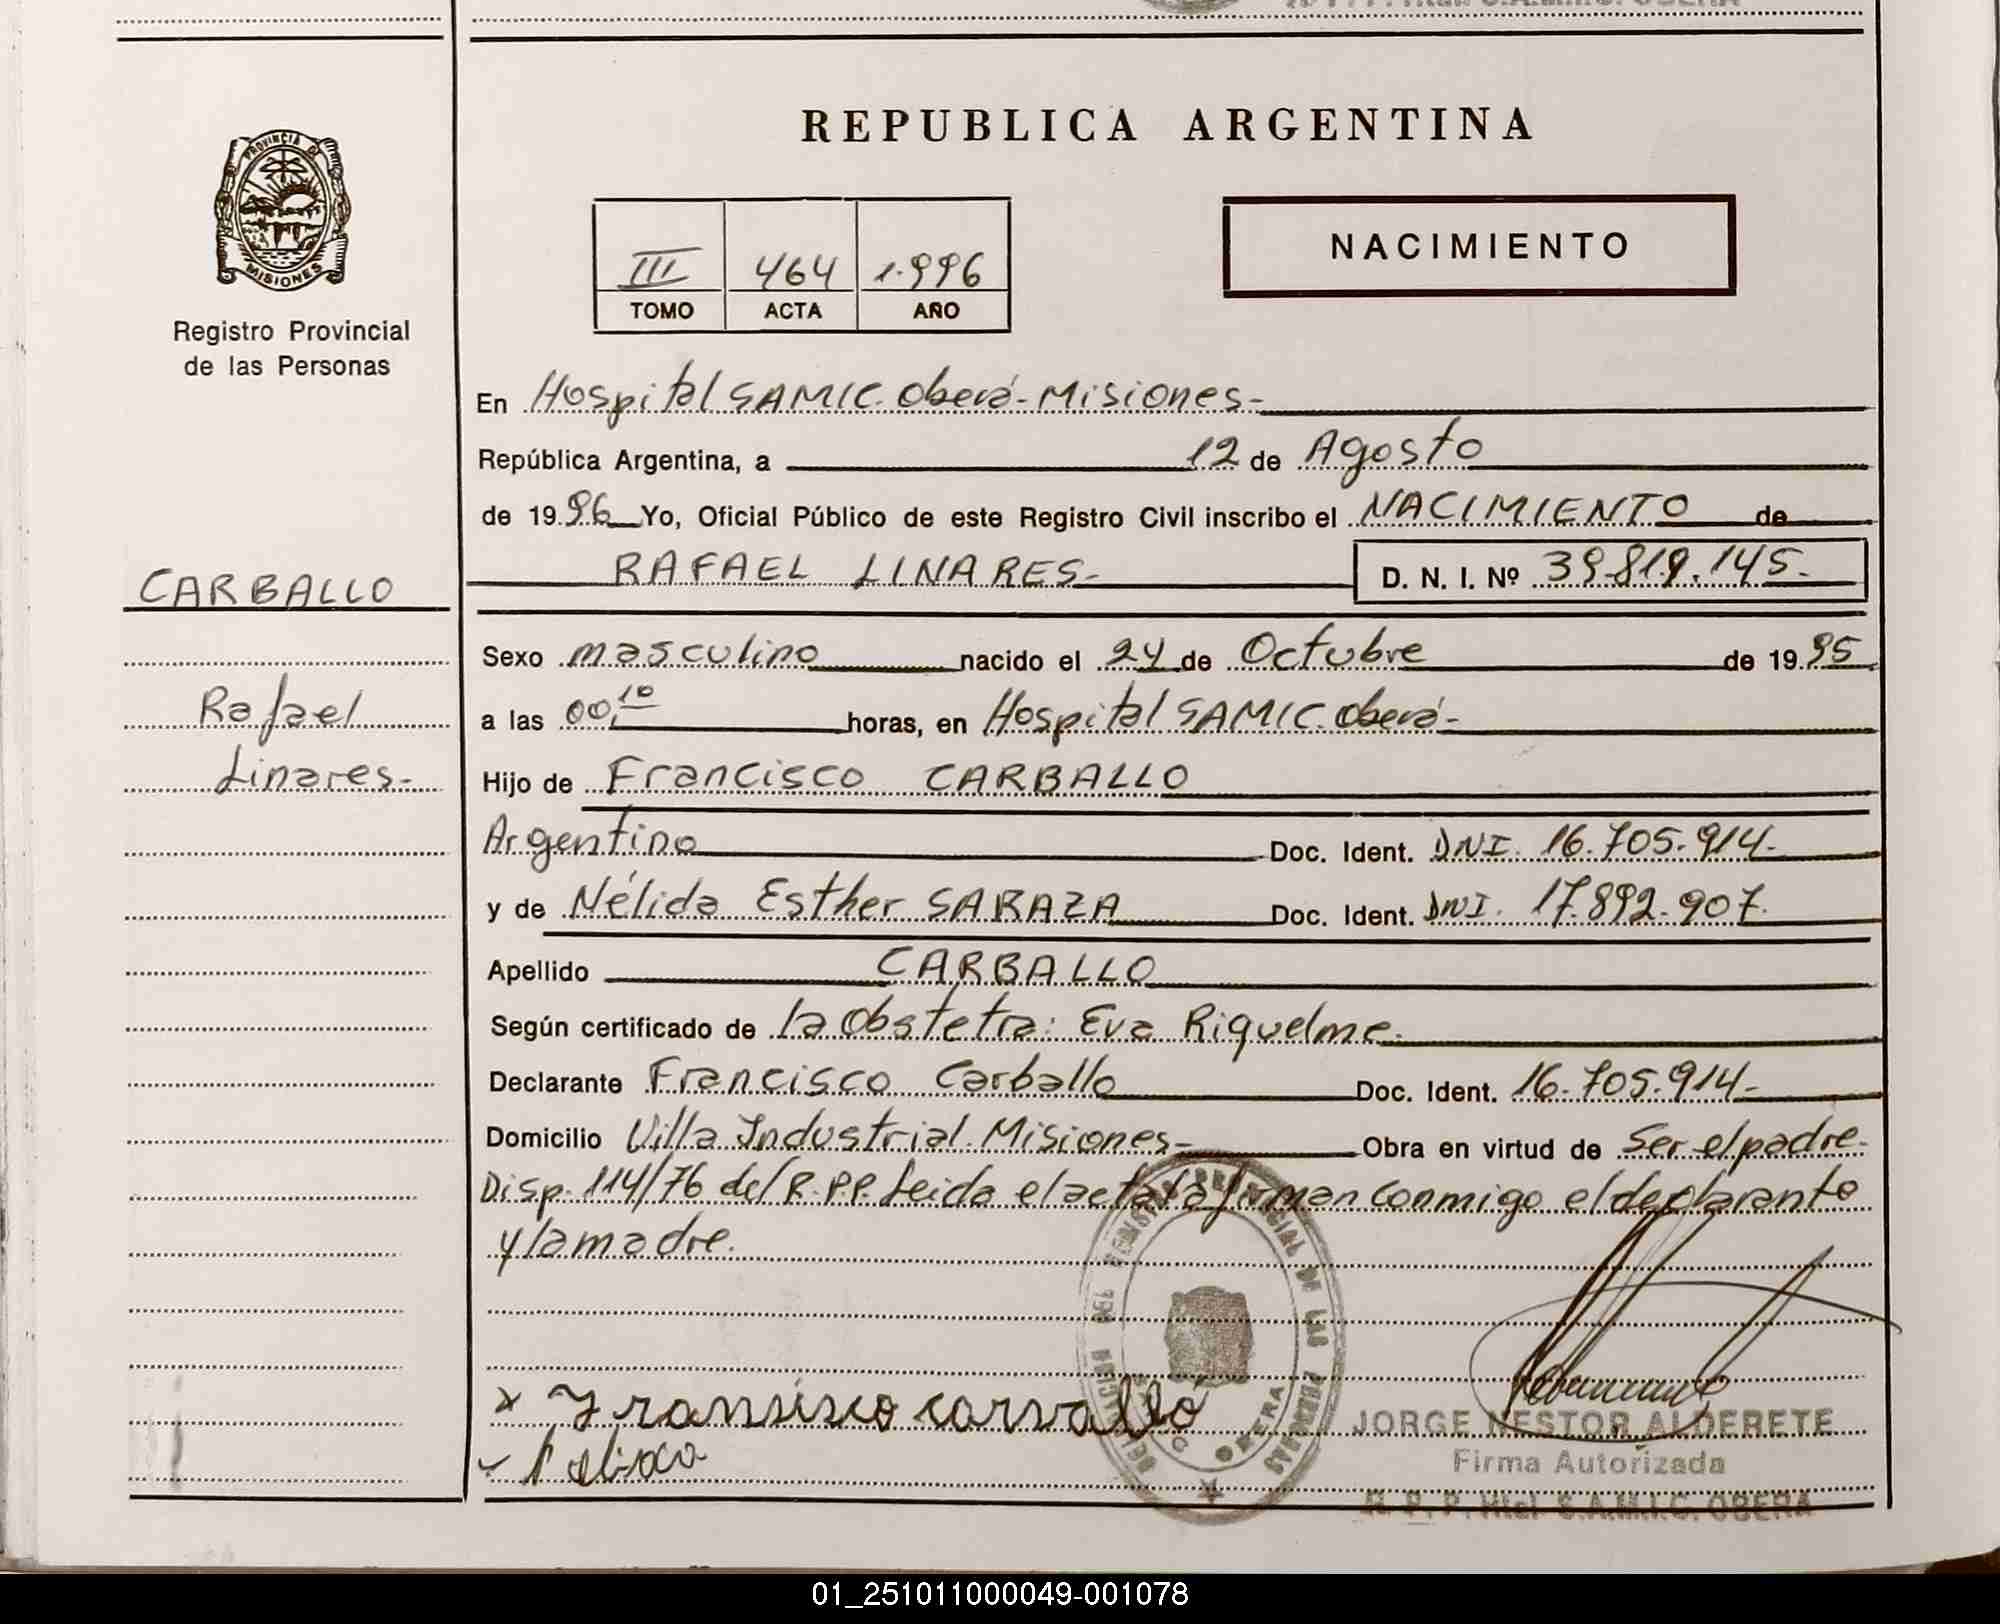 REPUBLICA ARGENTINA
PROVINCIA DE
MISIONES
Registro Provincial
de las Personas
III 464 1.996
TOMO ACTA AÑO
NACIMIENTO
En Hospital SAMIC. Oberá - Misiones -
República Argentina, a 12 de Agosto
de 19 96 Yo, Oficial Público de este Registro Civil inscribo el NACIMIENTO de
RAFAEL LINARES - D. N. I. Nº 39.819.145.-
CARBALLO
Rafael
Linares -
Sexo masculino nacido el 24 de Octubre de 19 95
a las 00,10 horas, en Hospital SAMIC. Oberá -
Hijo de Francisco CARBALLO
Argentino Doc. Ident. DNI. 16.705.914 -
y de Nélida Esther SARAZA Doc. Ident. DNI. 17.892.907.
Apellido CARBALLO
Según certificado de la obstetra: Eva Riquelme.
Declarante Francisco Carballo Doc. Ident. 16.705.914 -
Domicilio Villa Industrial. Misiones - Obra en virtud de Ser el padre.
Disp. 114/76 del R.P.P. Leida el acta la firman conmigo el declarante
y la madre.
REGISTRO PROVINCIAL DE LAS PERSONAS
OBERA
x Fransisco carvallo
JORGE NESTOR ALDERETE
Firma Autorizada
R. P. P. Htal. S.A.M.I.C. OBERA
01_251011000049-001078